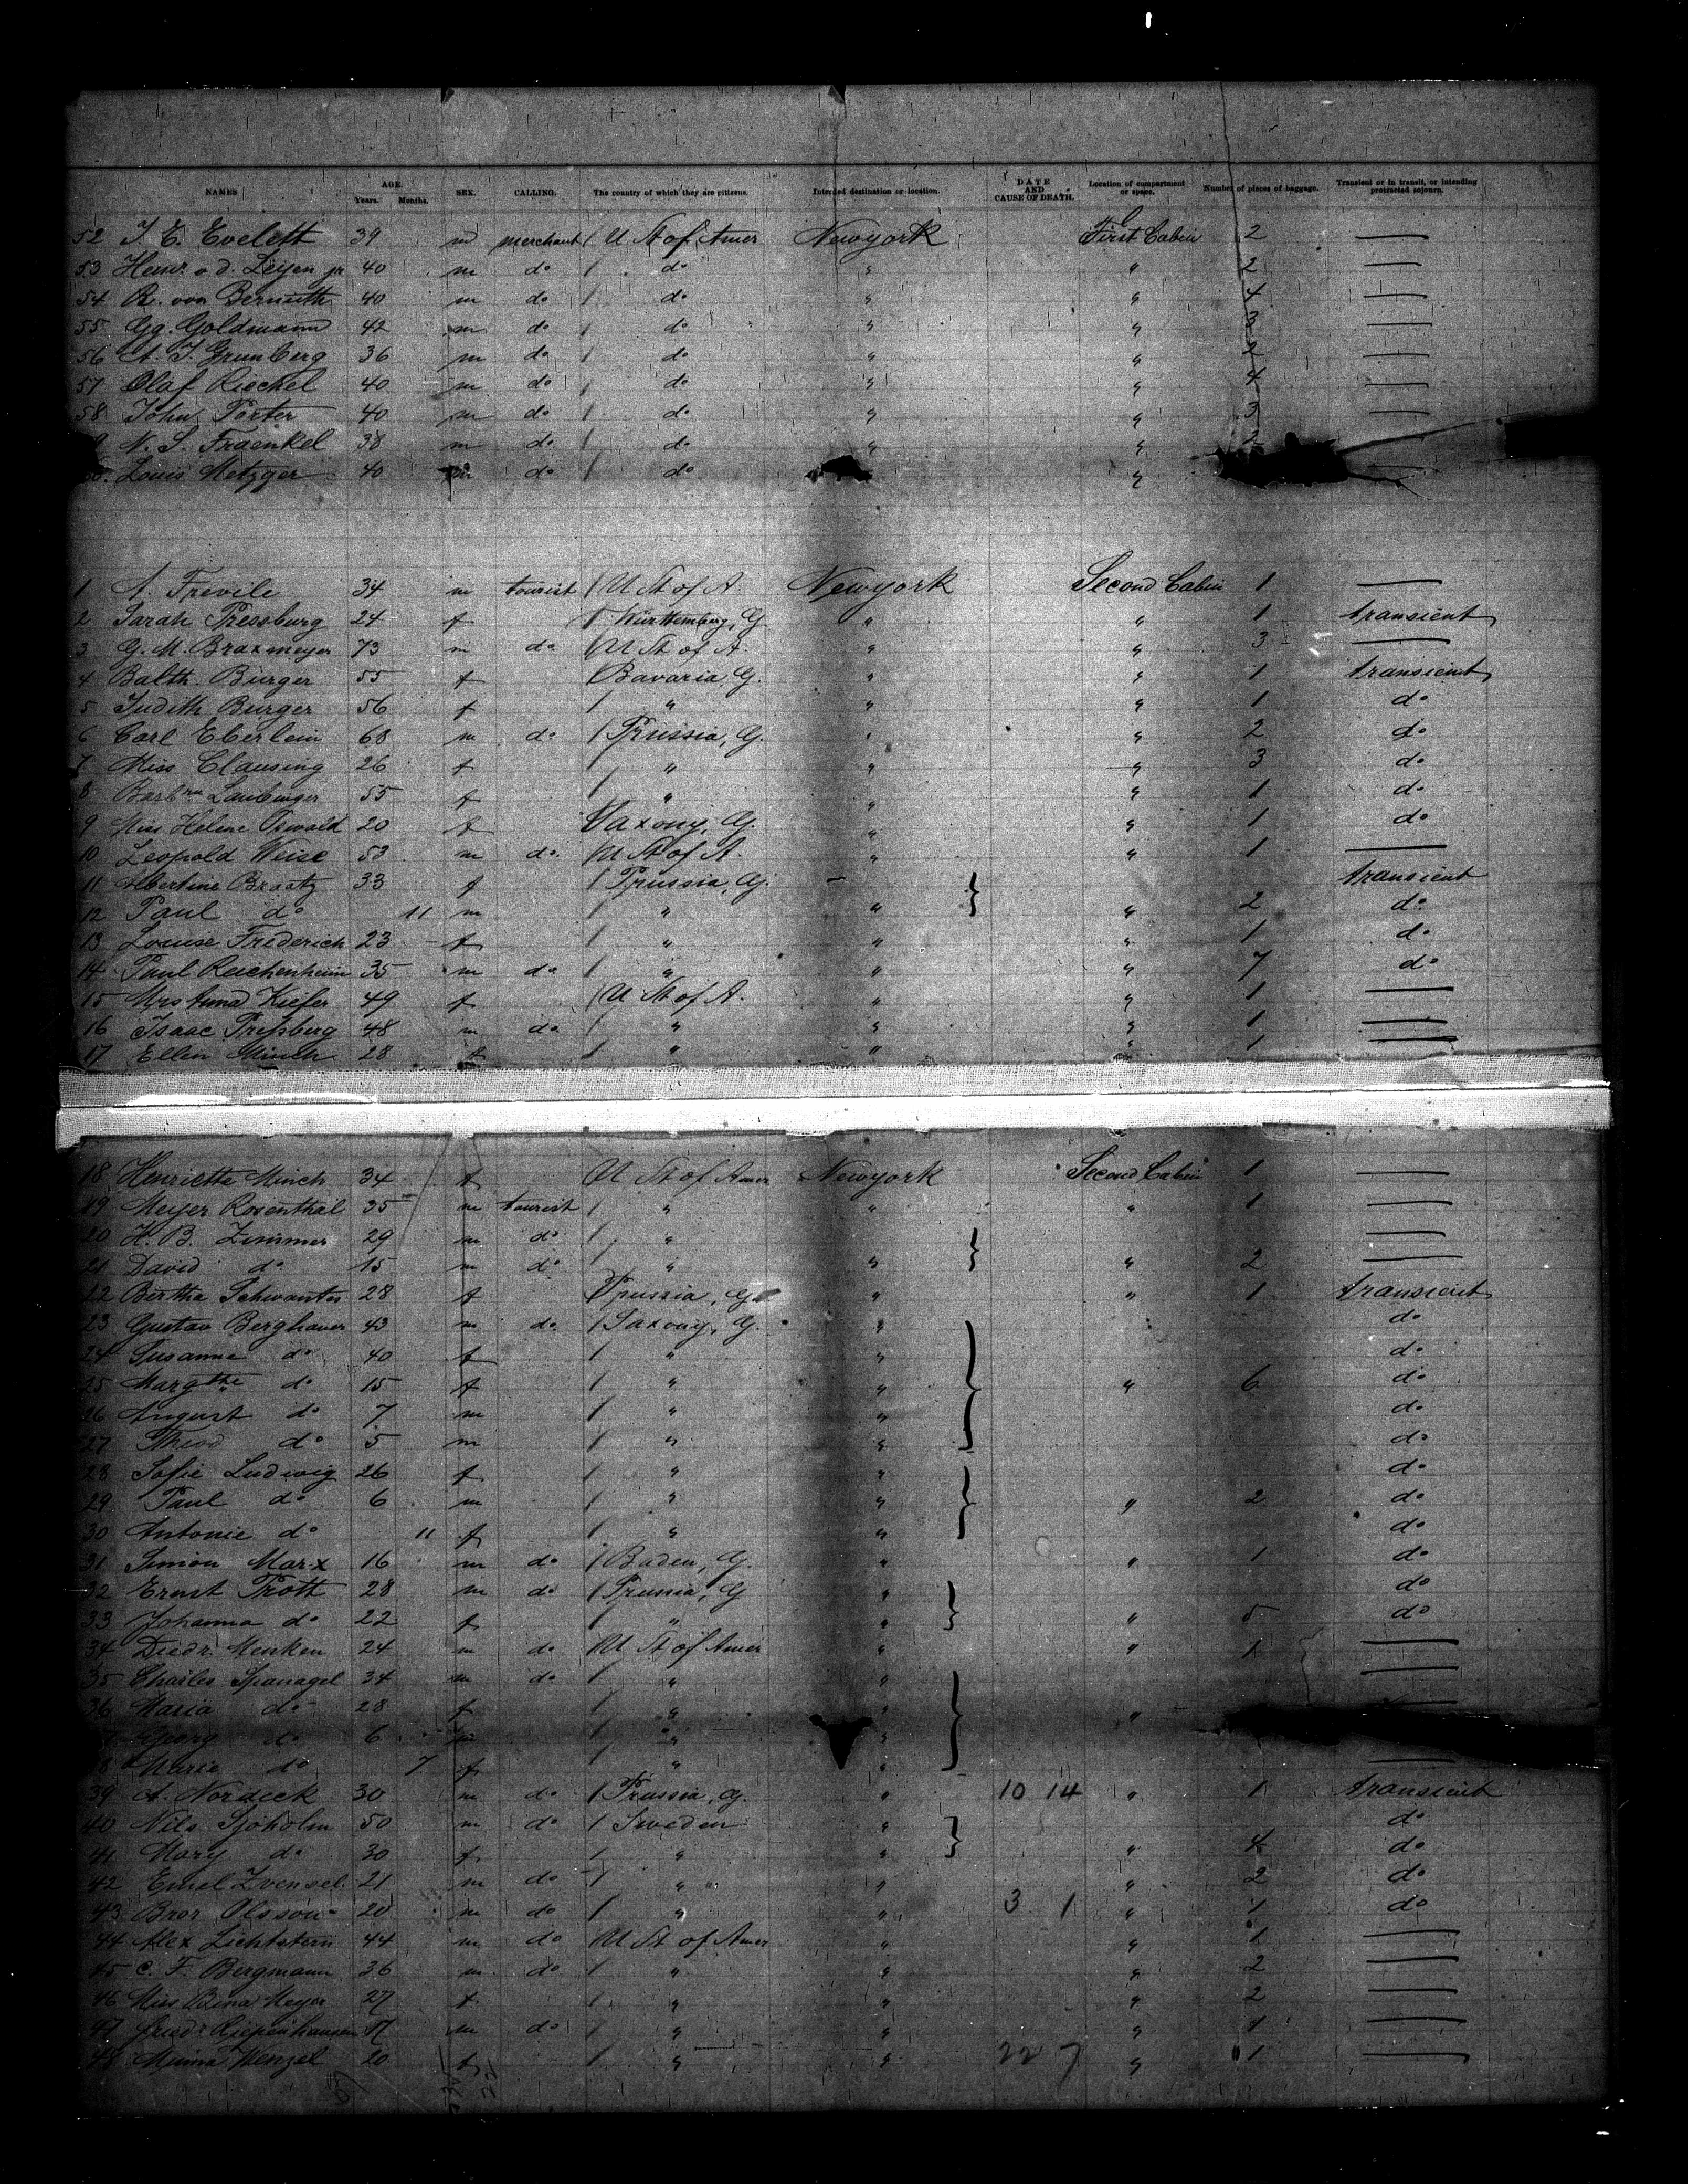 NAMES AGE. Years. Months. SEX. CALLING. The country of which they are citizens. Intended destination or location. DATE AND CAUSE OF DEATH. Location of compartment or space. Number of pieces of baggage. Transient or in transit, or intending protracted sojourn.
52 J. E. Evelett 39 m merchant / U St of Amer Newyork First Cabin 2 —
53 Henr. v. d. Leyen jr 40 m do / do " " 2 —
54 R. von Bernuth 40 m do / do " " 4 —
55 Gg. Goldmann 42 m do / do " " 3 —
56 A. J. Grunberg 36 m do / do " " 2 —
57 Olaf Riechel 40 m do / do " " 4 —
58 John Porter 40 m do / do " " 3 —
9 N. S. Fraenkel 38 m do / do " "
Louis Metzger 40 m do / do "
1 A. Frevile 34 m tourist / U St of A. Newyork Second Cabin 1 —
2 Sarah Pressburg 24 f / Württemberg, G " " 1 transient
3 G. M. Braxmeyer 73 m do / U St of A. " " 3 —
4 Balth. Burger 55 f / Bavaria G. " " 1 transient
5 Judith Burger 56 f / " " " 1 do
6 Carl Eberlein 68 m do / Prussia, G. " " 2 do
7 Miss Clausing 26 f / " " " 3 do
8 Laubinger 55 f / " " " 1 do
9 Miss Helene Oswald 20 f Saxony, G. " " 1 do
10 Leopold Weise 53 m do. / U St of A. " " 1 —
11 Albertine Braatz 33 f / Prussia, G. transient
12 Paul do 11 m / " " " 2 do
13 Louise Friderich 23 f / " " " 1 do
14 Paul Reichenheim 35 m do / " " " 7 do
15 Mrs Anna Kiefer 49 f / U St of A. " " 1 —
16 Isaac Preßberg 48 m do / " " " 1 —
17 Ellen Minch 28 f / " " " 1 —
18 Henriette Minch 34 f U St of Amer Newyork Second Cabin 1 —
19 Meyer Rosenthal 35 m tourist / " " " 1 —
20 H. B. Zimmer 29 m do / " —
21 David do 15 m do / " " " 2 —
22 Bertha Schwantes 28 f Prussia, G. " " 1 transient
23 Gustav Berghauer 43 m do. / Saxony, G. " do
24 Susanne do 40 f / " " do
25 Margthe do 15 f / " " " 6 do
26 August do 7 m / " " do
27 Theod do 5 m / " " do
28 Sofie Ludwig 26 f / " " do
29 Paul do 6 m / " " " 2 do
30 Antonie do 11 f / " " do
31 Simon Marx 16 m do / Baden, G. " " 1 do
32 Ernst Troth 28 m do / Prussia, G " do
33 Johanna do 22 f / " " " 5 do
34 Diedr. Menken 24 m do / U St of Amer " " 1 —
35 Charles Spanagel 34 m do / " " —
36 Maria do 28 f / " " " —
Georg do 6 / " "
8 Marie do 7 f / " " —
39 A. Nordeck 30 m do / Prussia, G. " 10 14 " 1 transient
40 Nils Sjöholm 50 m do / Sweden " do
41 Mary do 30 f / " " " 4 do
42 Emel 21 m do / " " " 2 do
43 Bror Olsson 20 m do / " " 3 1 " 1 do
44 Alex Lichtstern 44 m do / U St of Amer " " 1 —
45 C. F. Bergmann 36 m do / " " " 2 —
46 Miss Bina Meyer 27 f / " " " 2 —
47 Friedr Riepenhausen m do / " " " 1 —
48 Minna Wenzel 20 f / " " 22 7 " 1 —